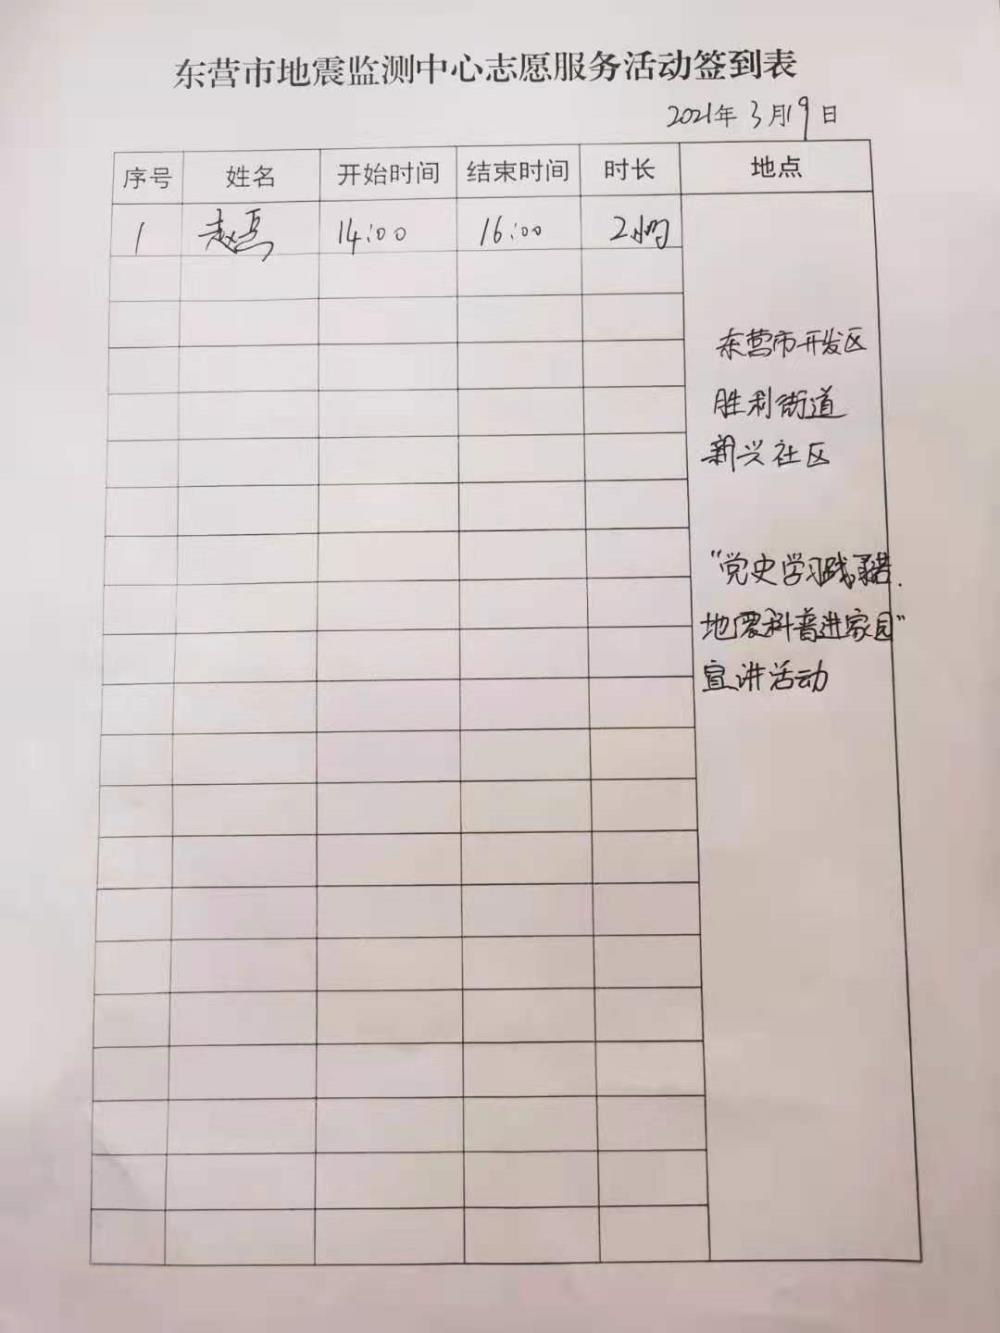 东营市地震监测中心志愿服务活动签到表
2021年 3月19日
序号 姓名 开始时间 结束时间 时长 地点
1 赵 14:00 16:00 2小时
东营市开发区
胜利街道
新兴社区
"党史学习
地震科普进家园"
宣讲活动